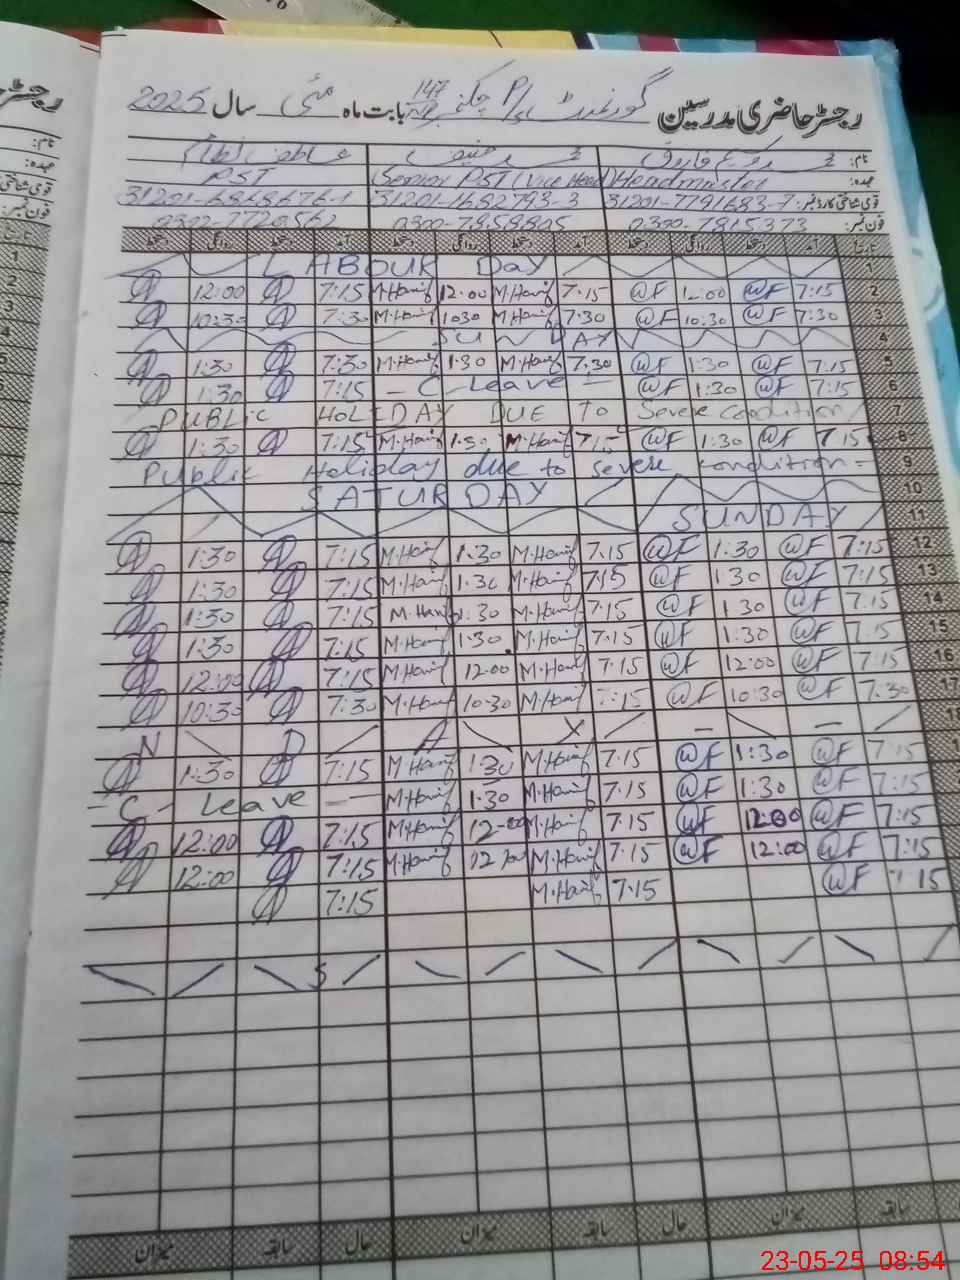 رجسٹر حاضری مدرسین گورنمنٹ P/S چکنمبر 147 بابت ماہ مئی سال 2025
نام: محمد فاروق محمد حنیف
عہدہ: Headmaster Senior PST (Vice Head) PST
قومی شناختی کارڈ نمبر: 31201-7791683-7 31201-1682793-3 31201-6868676-1
فون نمبر: 0300-7815373 0300-7858805 0302-7720562
تاریخ آمد دستخط روانگی دستخط آمد دستخط روانگی دستخط آمد دستخط روانگی دستخط
LABOUR DAY 1
12:00 7:15 M.Hanif 12:00 M.Hanif 7:15 @F 12:00 @F 7:15 2
10:30 7:30 M.Hanif 1030 M.Hanif 7:30 @F 10:30 @F 7:30 3
SUNDAY 4
1:30 7:30 M.Hanif 1:30 M.Hanif 7:30 @F 1:30 @F 7:15 5
1:30 7:15 - C - Leave - @F 1:30 @F 7:15 6
PUBLIC HOLIDAY DUE TO Severe Condition 7
1:30 7:15 M.Hanif 1:30 M.Hanif 7:15 @F 1:30 @F 7:15 8
Public Holiday due to severe condition - 9
SATURDAY 10
SUNDAY 11
1:30 7:15 M.Hanif 1:30 M.Hanif 7:15 @F 1:30 @F 7:15 12
1:30 7:15 M.Hanif 1:30 M.Hanif 7:15 @F 1:30 @F 7:15 13
1:30 7:15 M.Hanif 1:30 M.Hanif 7:15 @F 1:30 @F 7:15 14
1:30 7:15 M.Hanif 1:30 M.Hanif 7:15 @F 1:30 @F 7:15 15
12:00 7:15 M.Hanif 12:00 M.Hanif 7:15 @F 12:00 @F 7:15 16
10:30 7:30 M.Hanif 10:30 M.Hanif 7:15 @F 10:30 @F 7:30 17
N D A Y
1:30 7:15 M.Hanif 1:30 M.Hanif 7:15 @F 1:30 @F 7:15
- C - Leave - M.Hanif 1:30 M.Hanif 7:15 @F 1:30 @F 7:15
12:00 7:15 M.Hanif 12:00 M.Hanif 7:15 @F 12:00 @F 7:15
12:00 7:15 M.Hanif 12:00 M.Hanif 7:15 @F 12:00 @F 7:15
7:15 M.Hanif 7:15 @F 7:15
S
سابقہ میزان حال سابقہ میزان حال سابقہ میزان
23-05-25 08:54